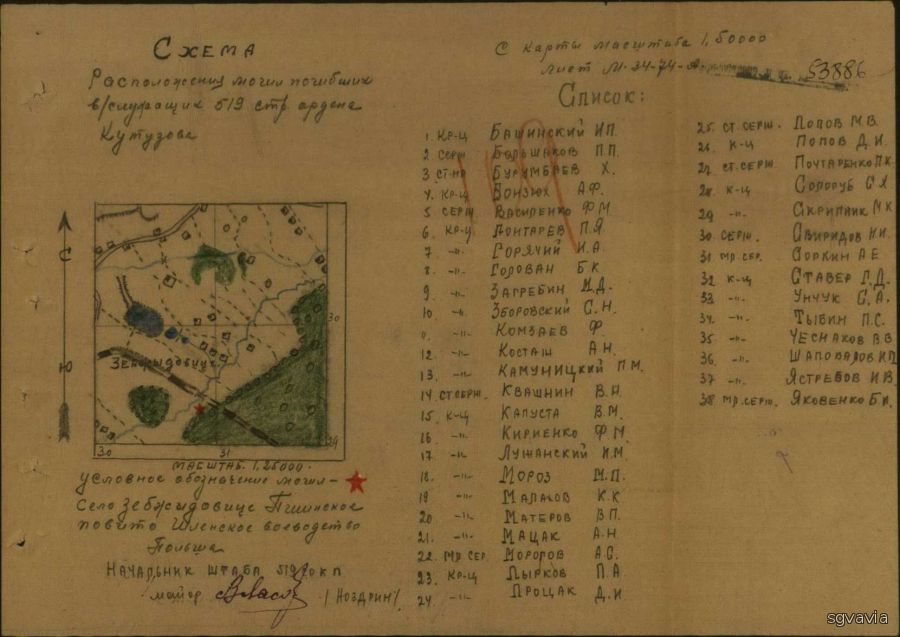 Схема
Расположения могил погибших
в/служащих 519 стр. ордена
Кутузова
С
Ю
Зебжыдовице
30
29
30
31
МАСШТАБ 1:25000.
условное обозначение могил -
Село Зебжыдовице
повята воеводство
Польша
НАЧАЛЬНИК ШТАБА 519
майор /НОЗДРИН/
С карты масштаба 1:50000
Лист М-34-74-А
53886
Список:
1. КР-Ц БАШИНСКИЙ И.П.
2 СЕРЖ БОЛЬШАКОВ П.П.
3 СТ-НА БУРУМБАЕВ Х.
4. КР-Ц БОНЗЮХ А.Ф.
5 СЕРЖ ВАСИЛЕНКО Ф.М.
6. КР-Ц П.Я.
7 -"- ГОРЯЧИЙ И.А.
8 -"- ГОЛОВАН Б.К.
9 -"- ЗАГРЕБИН И.Д.
10 -"- ЗБОРОВСКИЙ С.Н.
11 -"- КОМЗАЕВ Ф.
12 -"- КОСТАШ А.Н.
13. -"- КАМУНИЦКИЙ П.М.
14 СТ.СЕРЖ. КВАШНИН В.И.
15 К-Ц КАПУСТА В.М.
16 -"- КИРИЕНКО Ф.М.
17 -"- ЛУЖАНСКИЙ И.М.
18 -"- МОРОЗ М.П.
19 -"- МАЛАХОВ К.К.
20 -"- МАТЕРОВ В.П.
21. -"- МАЦАК А.Н.
22. МЛ СЕР. А.С.
23. КР-Ц ПЫРКОВ П.А.
24 -"- ПРОЦАК Д.И.
25. СТ. СЕРЖ. ПОПОВ М.В.
26. К-Ц ПОПОВ Д.И.
27. СТ.СЕРЖ. ПОЧТАРЕНКО П.К.
28 К-Ц СОЛОРУБ С.Х.
29 -"- СКРИПНИК М.К.
30 СЕРЖ. СВИРИДОВ Н.И.
31 МЛ СЕР. СОРКИН А.Е.
32 К-Ц СТАВЕР Г.Д.
33 -"- УНЧУК С.А.
34. -"- ТЫВИН П.С.
35 -"- ЧЕСНАКОВ В.В.
36. -"- ШАПОВАЛОВ И.П.
37 -"- ЯСТРЕБОВ И.В.
38 МЛ.СЕРЖ. ЯКОВЕНКО Б.И.
sgvavia